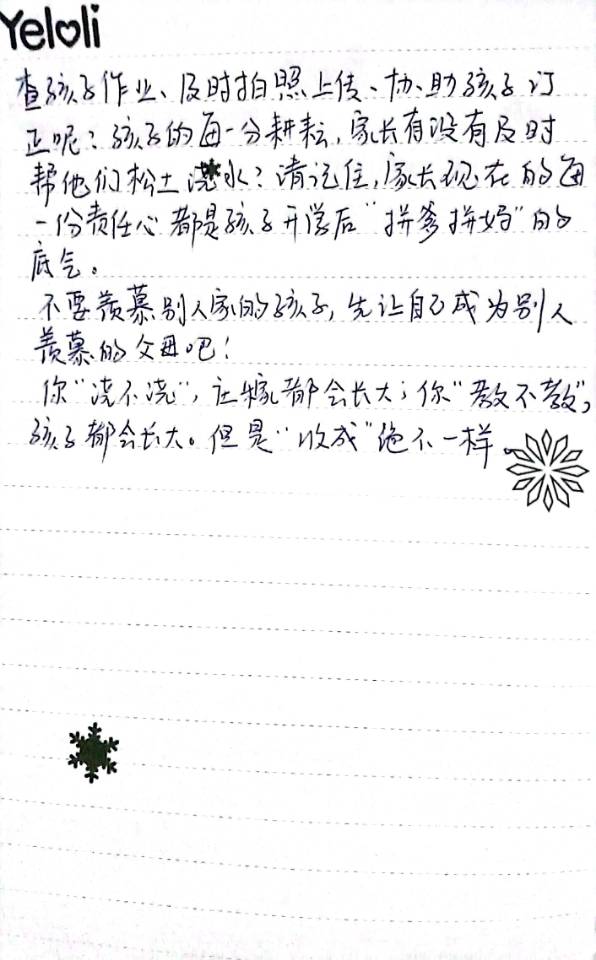 Yeloli
查孩子作业、及时拍照上传、协助孩子订
正呢？孩子的每一分耕耘，家长有没有及时
帮他们松土浇水？请记住，家长现在的每
一份责任心都是孩子开学后“拼爹拼妈”的
底气。
不要羡慕别人家的孩子，先让自己成为别人
羡慕的父母吧！
你“浇不浇”，庄稼都会长大；你“教不教”，
孩子都会长大。但是“收成”绝不一样。